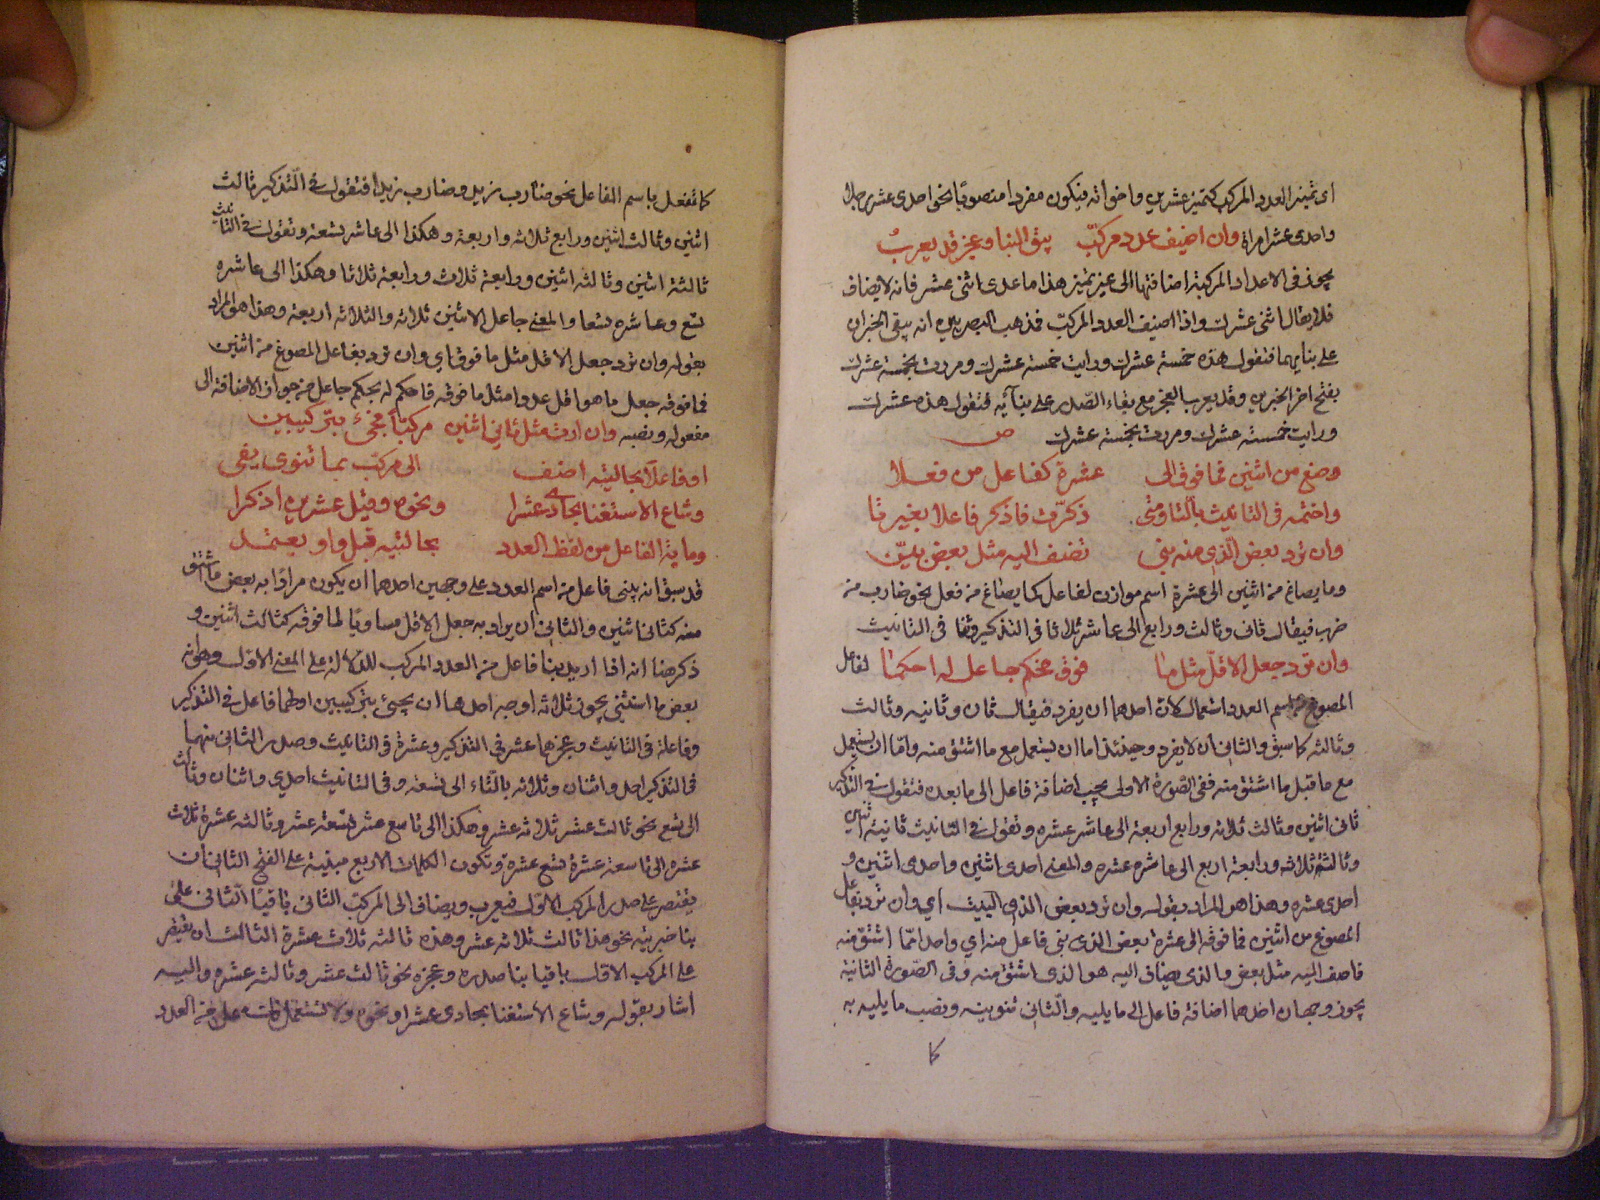 اى تميز العدد المركب كتميز عشرين واخواته فيكون مفردا منصوبا نحو احدى عشر رجلا
واحدى عشر امراة وان اضيف عدد مركب يبق البنا وعجز قد يعرب
يجوز فى الاعداد المركبة اضافتها الى غير تميز هذا ما عدى اثنى عشر فانه لا يضاف
فلا يقال اثنى عشرك واذا اضيف العدد المركب فذهب البصريين انه يبقى الجزان
على بنايهما فتقول هذه خمسة عشرك ورايت خمسة عشرك ومررت بخمسة عشرك
بفتح اخر الجزين وقد يعرب العجز مع بقاء الصدر على بنآيه فتقول هذه عشرك
ورايت خمسة عشرك ومررت بخمسة عشرك ص
وصغ من اثنين فما فوق الى عشرة كفاعل من فعلا
واختمه فى التانيث بالتا ومتى ذكرت فاذكر فاعلا بغير تا
وان ترد بعض الذى منه بنى تضف اليه مثل بعض بيّن
وما يصاغ من اثنين الى عشرة اسم موازن لفاعل كما يصاغ من فعل نحو ضارب من
ضرب فيقال ثان وثالث ورابع الى عاشر بلا تا فى التذكير وبتا فى التانيث
وان ترد جعل الاقل مثل ما فوق فحكم جاعل له احكما لفاعل
المصوغ من اسم العدد استعمالان احدهما ان يفرد فيقال ثان وثانيه وثالث
وثالثه كما سبق والثانى ان لا يفرد وحينئذ اما ان يستعمل مع ما اشتق منه واما ان يستعمل
مع ما قبل ما اشتق منه ففى الصورة الاولى يجب اضافة فاعل الى ما بعده فتقول فى التذكير
ثانى اثنين وثالث ثلاثه ورابع اربعة الى عاشر عشره وتقول فى التانيث ثانية اثنين
وثالثة ثلاثه ورابعة اربع الى عاشره عشره والمعنى احدى اثنين واحدى اثنين و
احدى عشره وهذا هو المراد بقوله وان ترد بعض الذى البيت اي وان ترد بفاعل
المصوغ من اثنين فما فوقه الى عشرة بعض الذى بنى فاعل منه اي واحدا مما اشتق منه
فاضف اليه مثل بعض والذى يضاف اليه هو الذى اشتق منه وفى الصورة الثانية
يجوز وجهان احدهما اضافة فاعل الى ما يليه والثانى تنوينه ونصب ما يليه به
كما
كما تفعل باسم الفاعل نحو ضارب زيد وضارب زيدا فتقول فى التذكير ثالث
اثنين وثالث اثنين ورابع ثلاثه واربعة وهكذا الى عاشر تسعة وتقول فى التانيث
ثالثة اثنين وثالثه اثنين ورابعة ثلاث ورابعة ثلاثا وهكذا الى عاشره
تسع وعاشره تسعا والمعنى جاعل الاثنين ثلاثه والثلاثه اربعة وهذا هو المراد
بقوله وان ترد جعل الاقل مثل ما فوق اي وان ترد بفاعل المصوغ من اثنين
فما فوقه جعل ما هو اقل عددا مثل ما فوقه فاحكم له بحكم جاعل من جواز الاضافة الى
مفعوله ونصبه وان اردت مثل ثانى اثنين مركبا فجئ بتركيبين
او فاعلا بحالتيه اضف الى مركب بما تنوى يفى
وشاع الاستغنا بحادى عشرا ونحوه وقبل عشرين اذكرا
وبابه الفاعل من لفظ العدد بحالتيه قبل واو يعتمد
قد سبق انه يبنى فاعل من اسم العدد على وجهين احدهما ان يكون مرادا به بعض ما اشتق
منه كثانى اثنين والثانى ان يراد به جعل الاقل مساويا لما فوقه كثالث اثنين و
ذكر هنا انه اذا اريد بنا فاعل من العدد المركب للدلالة على المعنى الاول وهو انه
بعض ما اشتق يجوز ثلاثه اوجه احدها ان يجئ بتركيبين اولهما فاعل فى التذكير
وفاعلة فى التانيث وعجزهما عشر فى التذكير وعشرة فى التانيث وصدر الثانى منهما
فى التذكير احد واثنان وثلاثه بالتاء الى تسعة وفى التانيث احدى واثنان وثلاث
الى تسع نحو ثالث عشر ثلاثه عشر وهكذا الى تاسع عشر تسعة عشر وثالثه عشرة ثلاث
عشره الى تاسعة عشرة تسع عشره وتكون الكلمات الاربع مبنية على الفتح الثانى ان
يقتصر على صدر المركب الاول فيعرب ويضاف الى المركب الثانى باقيا الثانى على
بنا جزيه نحو هذا ثالث ثلاثه عشر وهذه ثالثه ثلاث عشرة الثالث ان يقتصر
على المركب الاول باقيا بنا صدره وعجزه نحو ثالث عشر وثالثة عشره واليه
اشار بقوله وشاع الاستغنا بحادى عشرا ونحوه ولا تستعمل فاعل من العدد